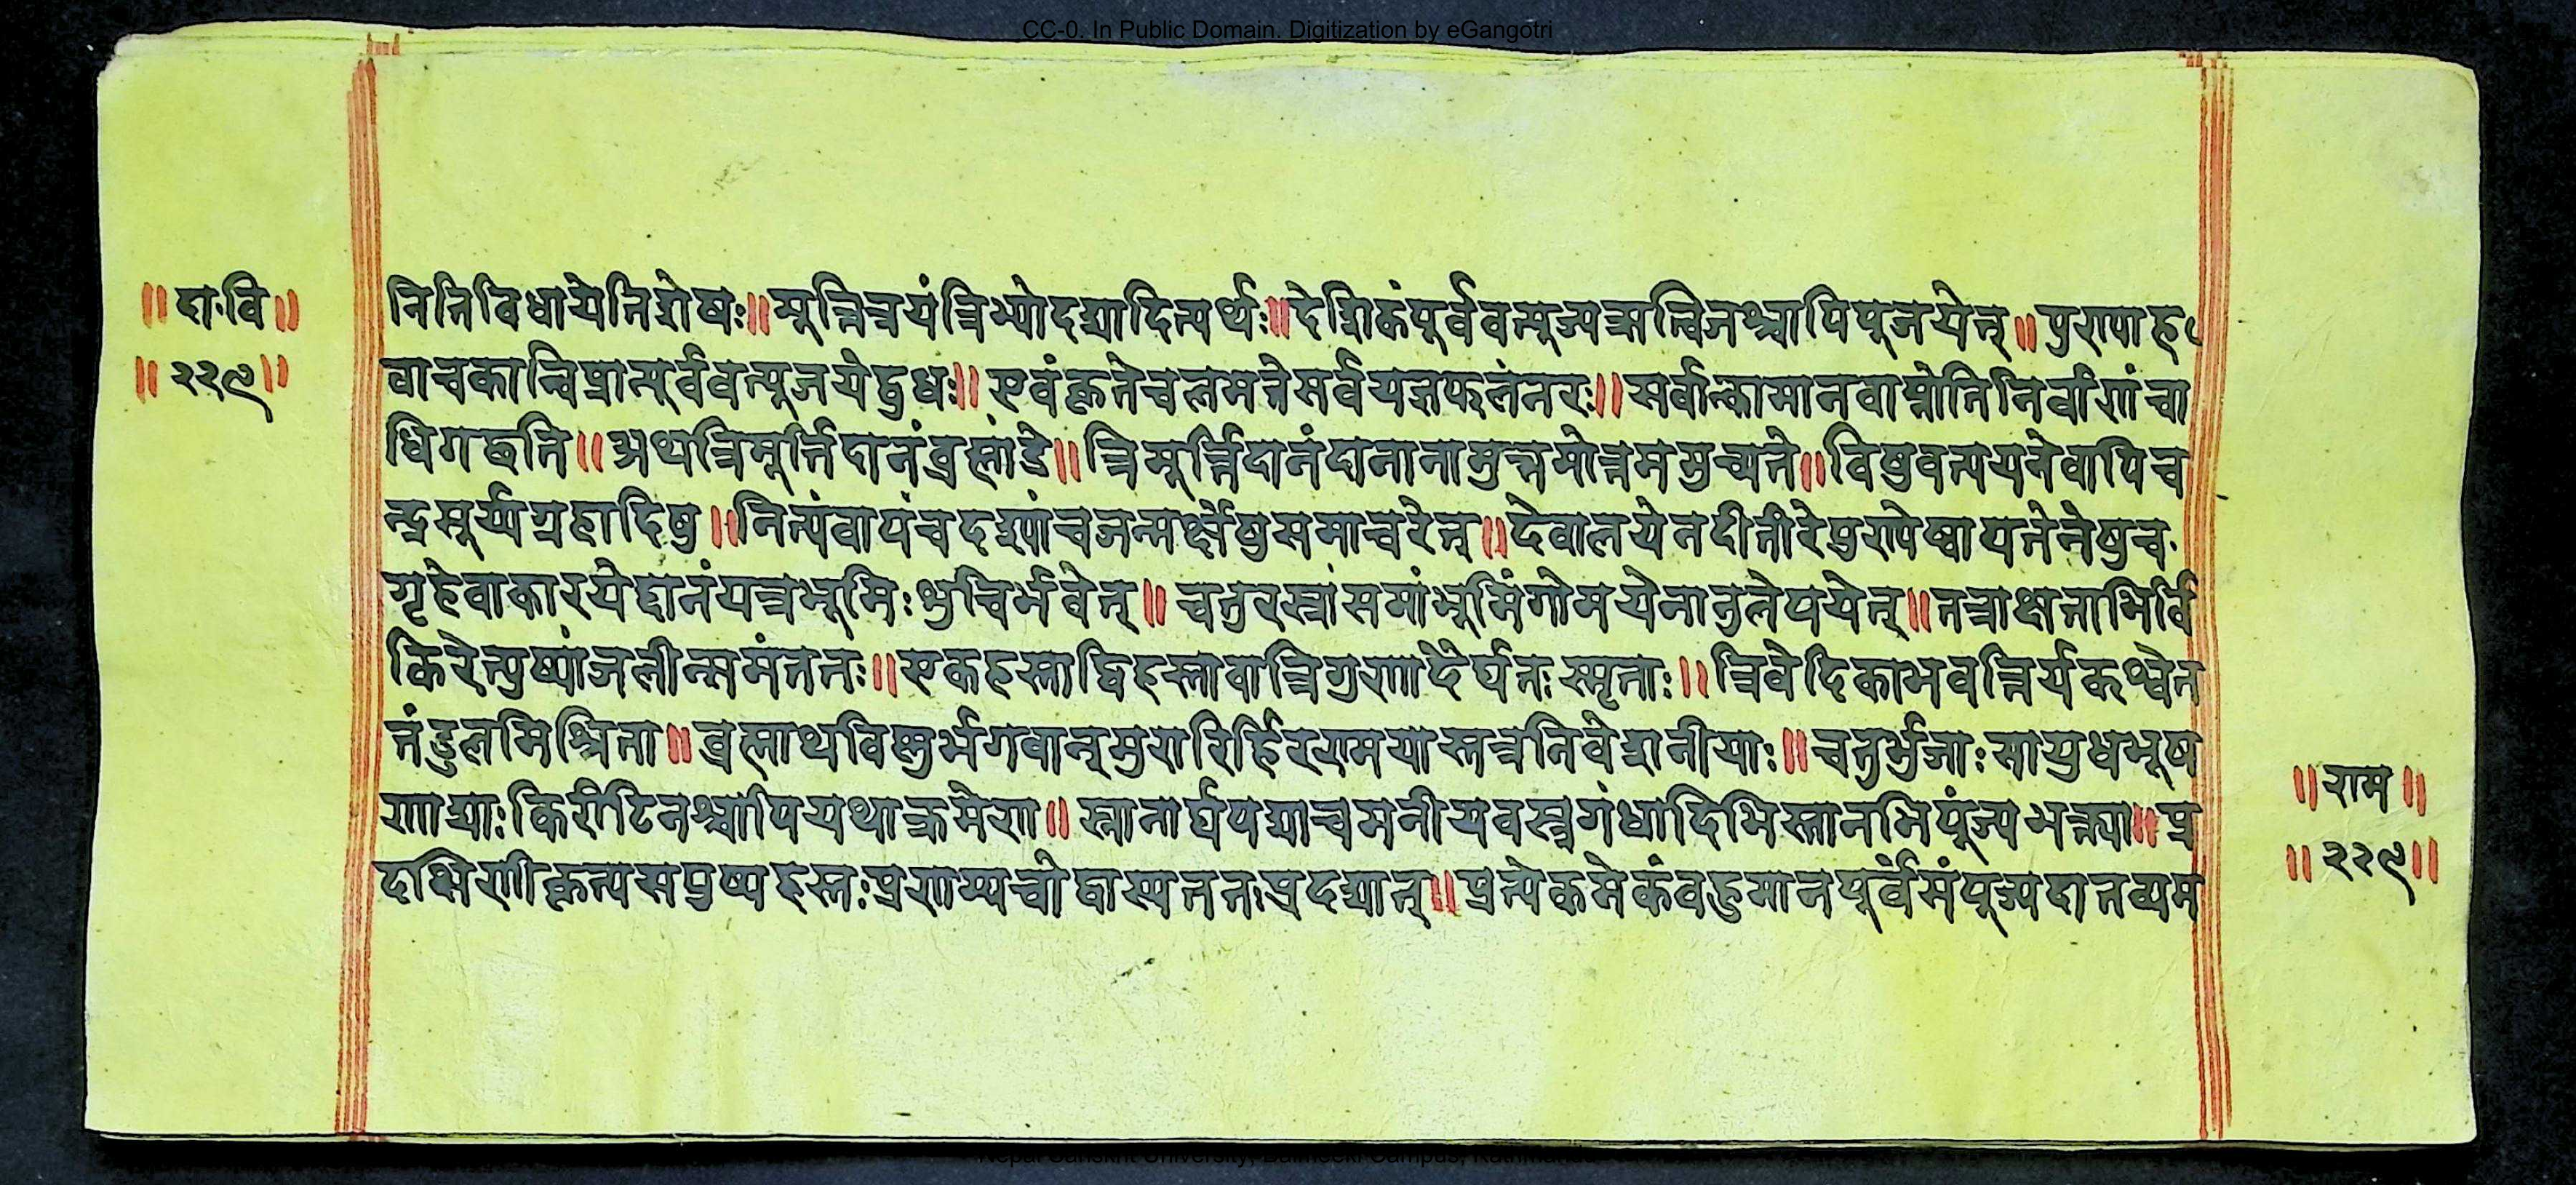 CC-0. In Public Domain. Digitization by eGangotri
॥दा॰वि॥
॥२२९॥
तितिविधायेतिशेषः॥मूर्त्तित्रयंत्रिभ्योदद्यादित्यर्थः॥देशिकंपूर्ववत्पूज्यऋत्विजश्चापिपूजयेत्॥पुराणह
वाचकान्विप्रान्पूर्ववत्पूजयेद्बुधः॥एवंकृतेचलमतेसर्वयज्ञफलंनरः॥सर्वान्कामानवाप्नोतिनिर्वाणंचा
धिगछति॥अथत्रिमूर्त्तिदानंब्रह्मांडे॥त्रिमूर्त्तिदानंदानानामुत्तमोत्तममुच्यते॥विषुवत्ययनेवापिच
न्द्रसूर्यग्रहादिषु॥नित्यंवापंचदश्यांचजन्मर्क्षेषुसमाचरेत्॥देवालयेनदीतीरेपुराणेष्वायतनेषुच
गृहेवाकारयेद्दानंयत्रभूमिःशुचिर्भवेत्॥चतुरस्रांसमांभूमिंगोमयेनानुलेपयेत्॥तत्राक्षताभिर्वि
किरेत्पुष्पांजलीन्समंततः॥एकहस्ताद्विहस्तावात्रिगुणादैर्घतःस्मृताः॥त्रिवेदिकाभवन्तिर्यकश्वेत
तंडुलमिश्रिता॥ब्रह्माथविष्णुर्भगवान्मुरारिर्हिरण्मयास्तत्रनिवेशनीयाः॥चतुर्भुजाःसायुधभूष
णाद्याःकिरीटिनश्चापियथाक्रमेण॥स्नानार्घपद्याचमनीयवस्त्रगंधादिभिस्तानभिपूंज्यभक्त्या॥प्र
दक्षिणीकृत्यसपुष्पहस्तःप्रणम्यचोद्वास्यततःप्रदद्यात्॥प्रत्येकमेकंवहुमानपूर्वंसंपूज्यदातव्यम
॥राम॥
॥२२९॥